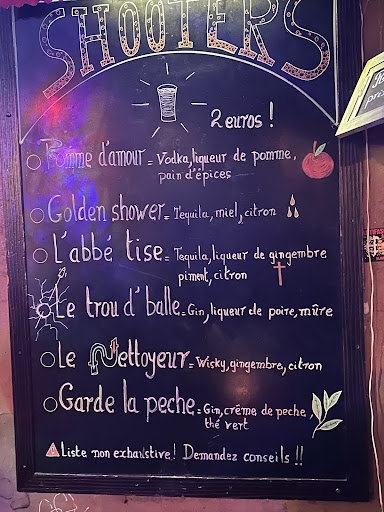 SHOOTERS
2 euros !
Pomme d'amour = Vodka, liqueur de pomme,
pain d'épices
Golden shower = Tequila, miel, citron
L'abbé tise = Tequila, liqueur de gingembre
piment, citron
Le trou d' balle = Gin, liqueur de poire, mûre
Le Nettoyeur = Wisky, gingembre, citron
Garde la peche = Gin, crême de peche,
thé vert
Liste non exhaustive ! Demandez conseils !!